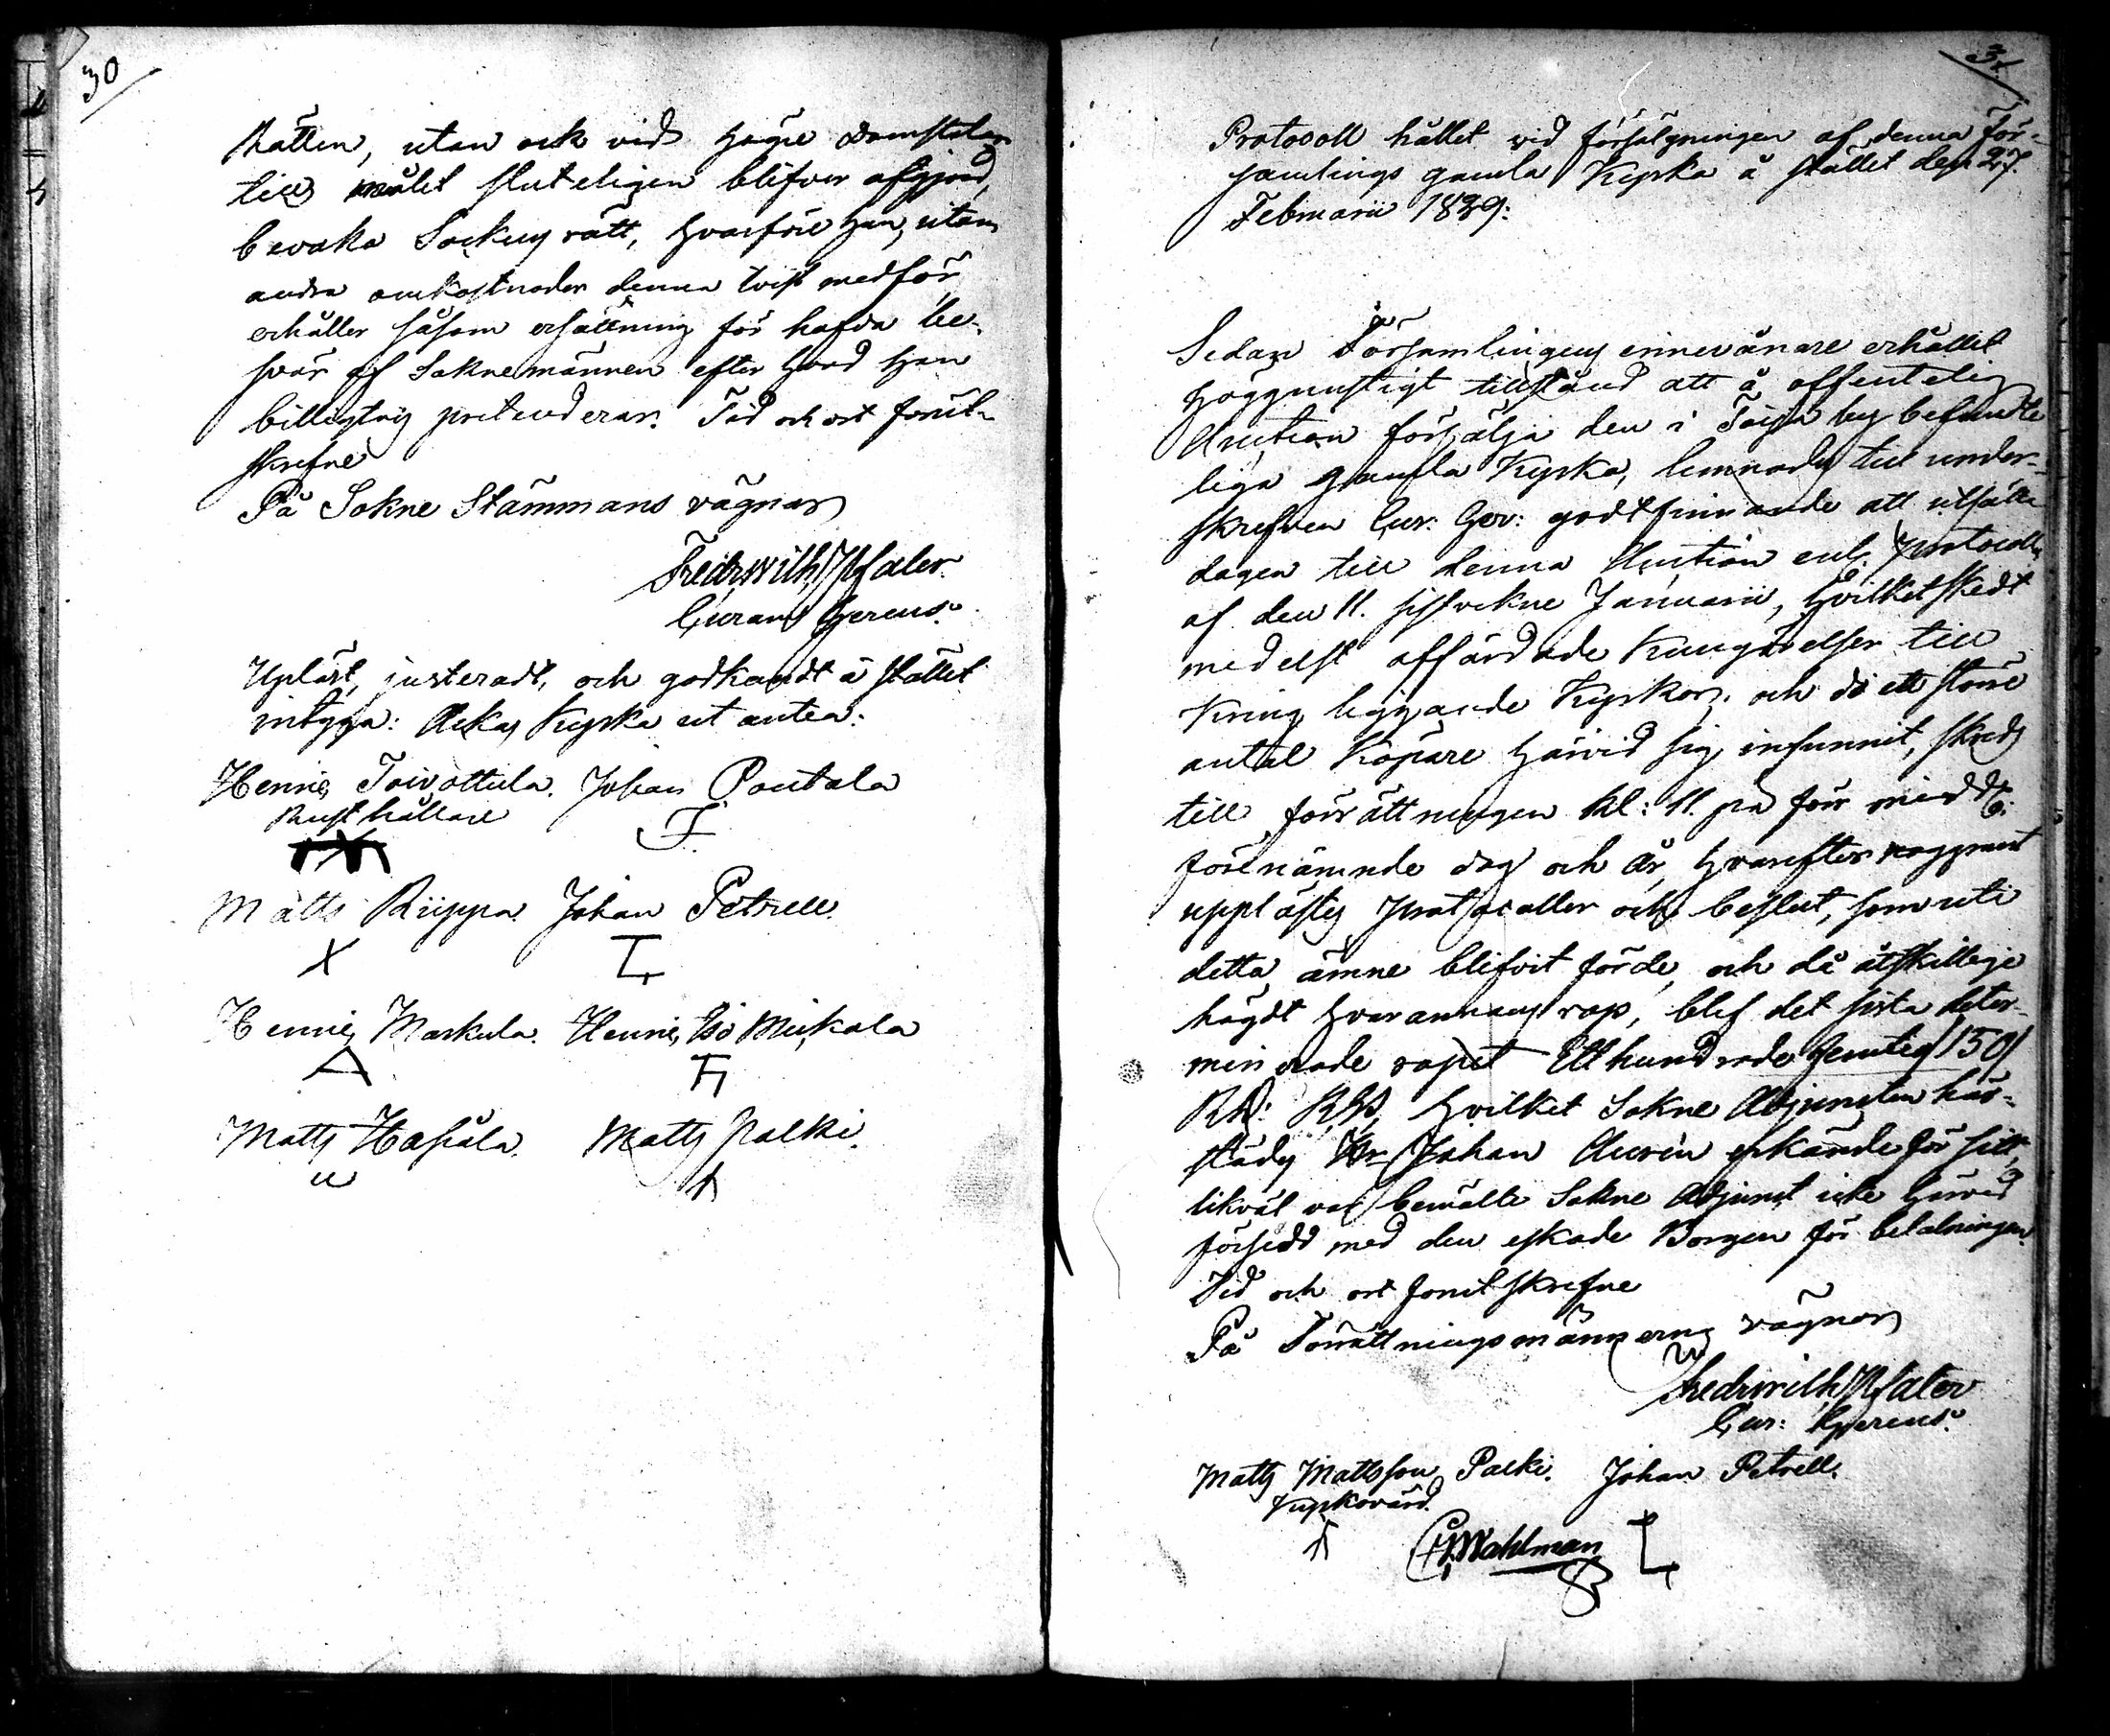 30
Rätten, utan ock vid högre domstolar
till målet sluteligen blifver afgjord,
bevaka Sockens rätt, hvarföre han, utom
andra omkostnader denna tvist medför
erhåller såsom ersättning för hafda be-
svär af Soknemännen efter hvad han
billigtvis pretenderar. Tid och ort förut-
skrefne
På Sokne Stämmans vägnar
Fredr Wilh Pfaler.
Curam Gerens.
Upläst, justeradt, och godkändt å stället
intyga: Kyrka ut antea:
Henric Toivottula. Johan Pontola
Rusthållare
Matts Riippa. Johan Petrell.
X
Henric Markula. Henric Iso Mickola
Matts Hapala. Matts Palki.
31
Protocoll hållet vid försälgningen af denna För-
samlings gamla Kyrka å stället den 27.
Februarii 1839.
Sedan Församlingens innevånare erhållit
höggunstigt tillstånd att å offentelig
Auction försälja den i by befindte-
liga gamla Kyrka, lemnades till under-
skrefven Cur: Ger: godtfinnande att utsätta
dagen till denna Auction enl. Protocoll
af den 11. sistvekne Januarii, hvilket skedt
medelst affärdade Kungörelser till
Kring liggande Kyrkor. och då ett större
antal Köpare härvid sig infunnit, skreds
till förrättningen kl: 11. på för midd.
förenämnde dag och År, hvarefter noggrant
upplästes Protocoller och beslut, som uti
detta ämne blifvit förde, och då åtskillige
högdt hvarannans rop, blef det sista deter-
minerade ropet Etthundrade femtio /150/
Rd: RGS, hvilket Sokne Adjuncten här-
städes Hr Johan Aurén erkände för sitt,
likväl var bemälte Sokne Adjunct icke härvid
försedd med den eskade Borgen för betalningen.
Tid och ort förut skrefne
På Förrättningsmännerns vägnar
Fredr Wilh Pfaler
Cur: Gerens.
Matts Mattsson Palki. Johan Petrell.
Kyrkovärd.
Wahlman